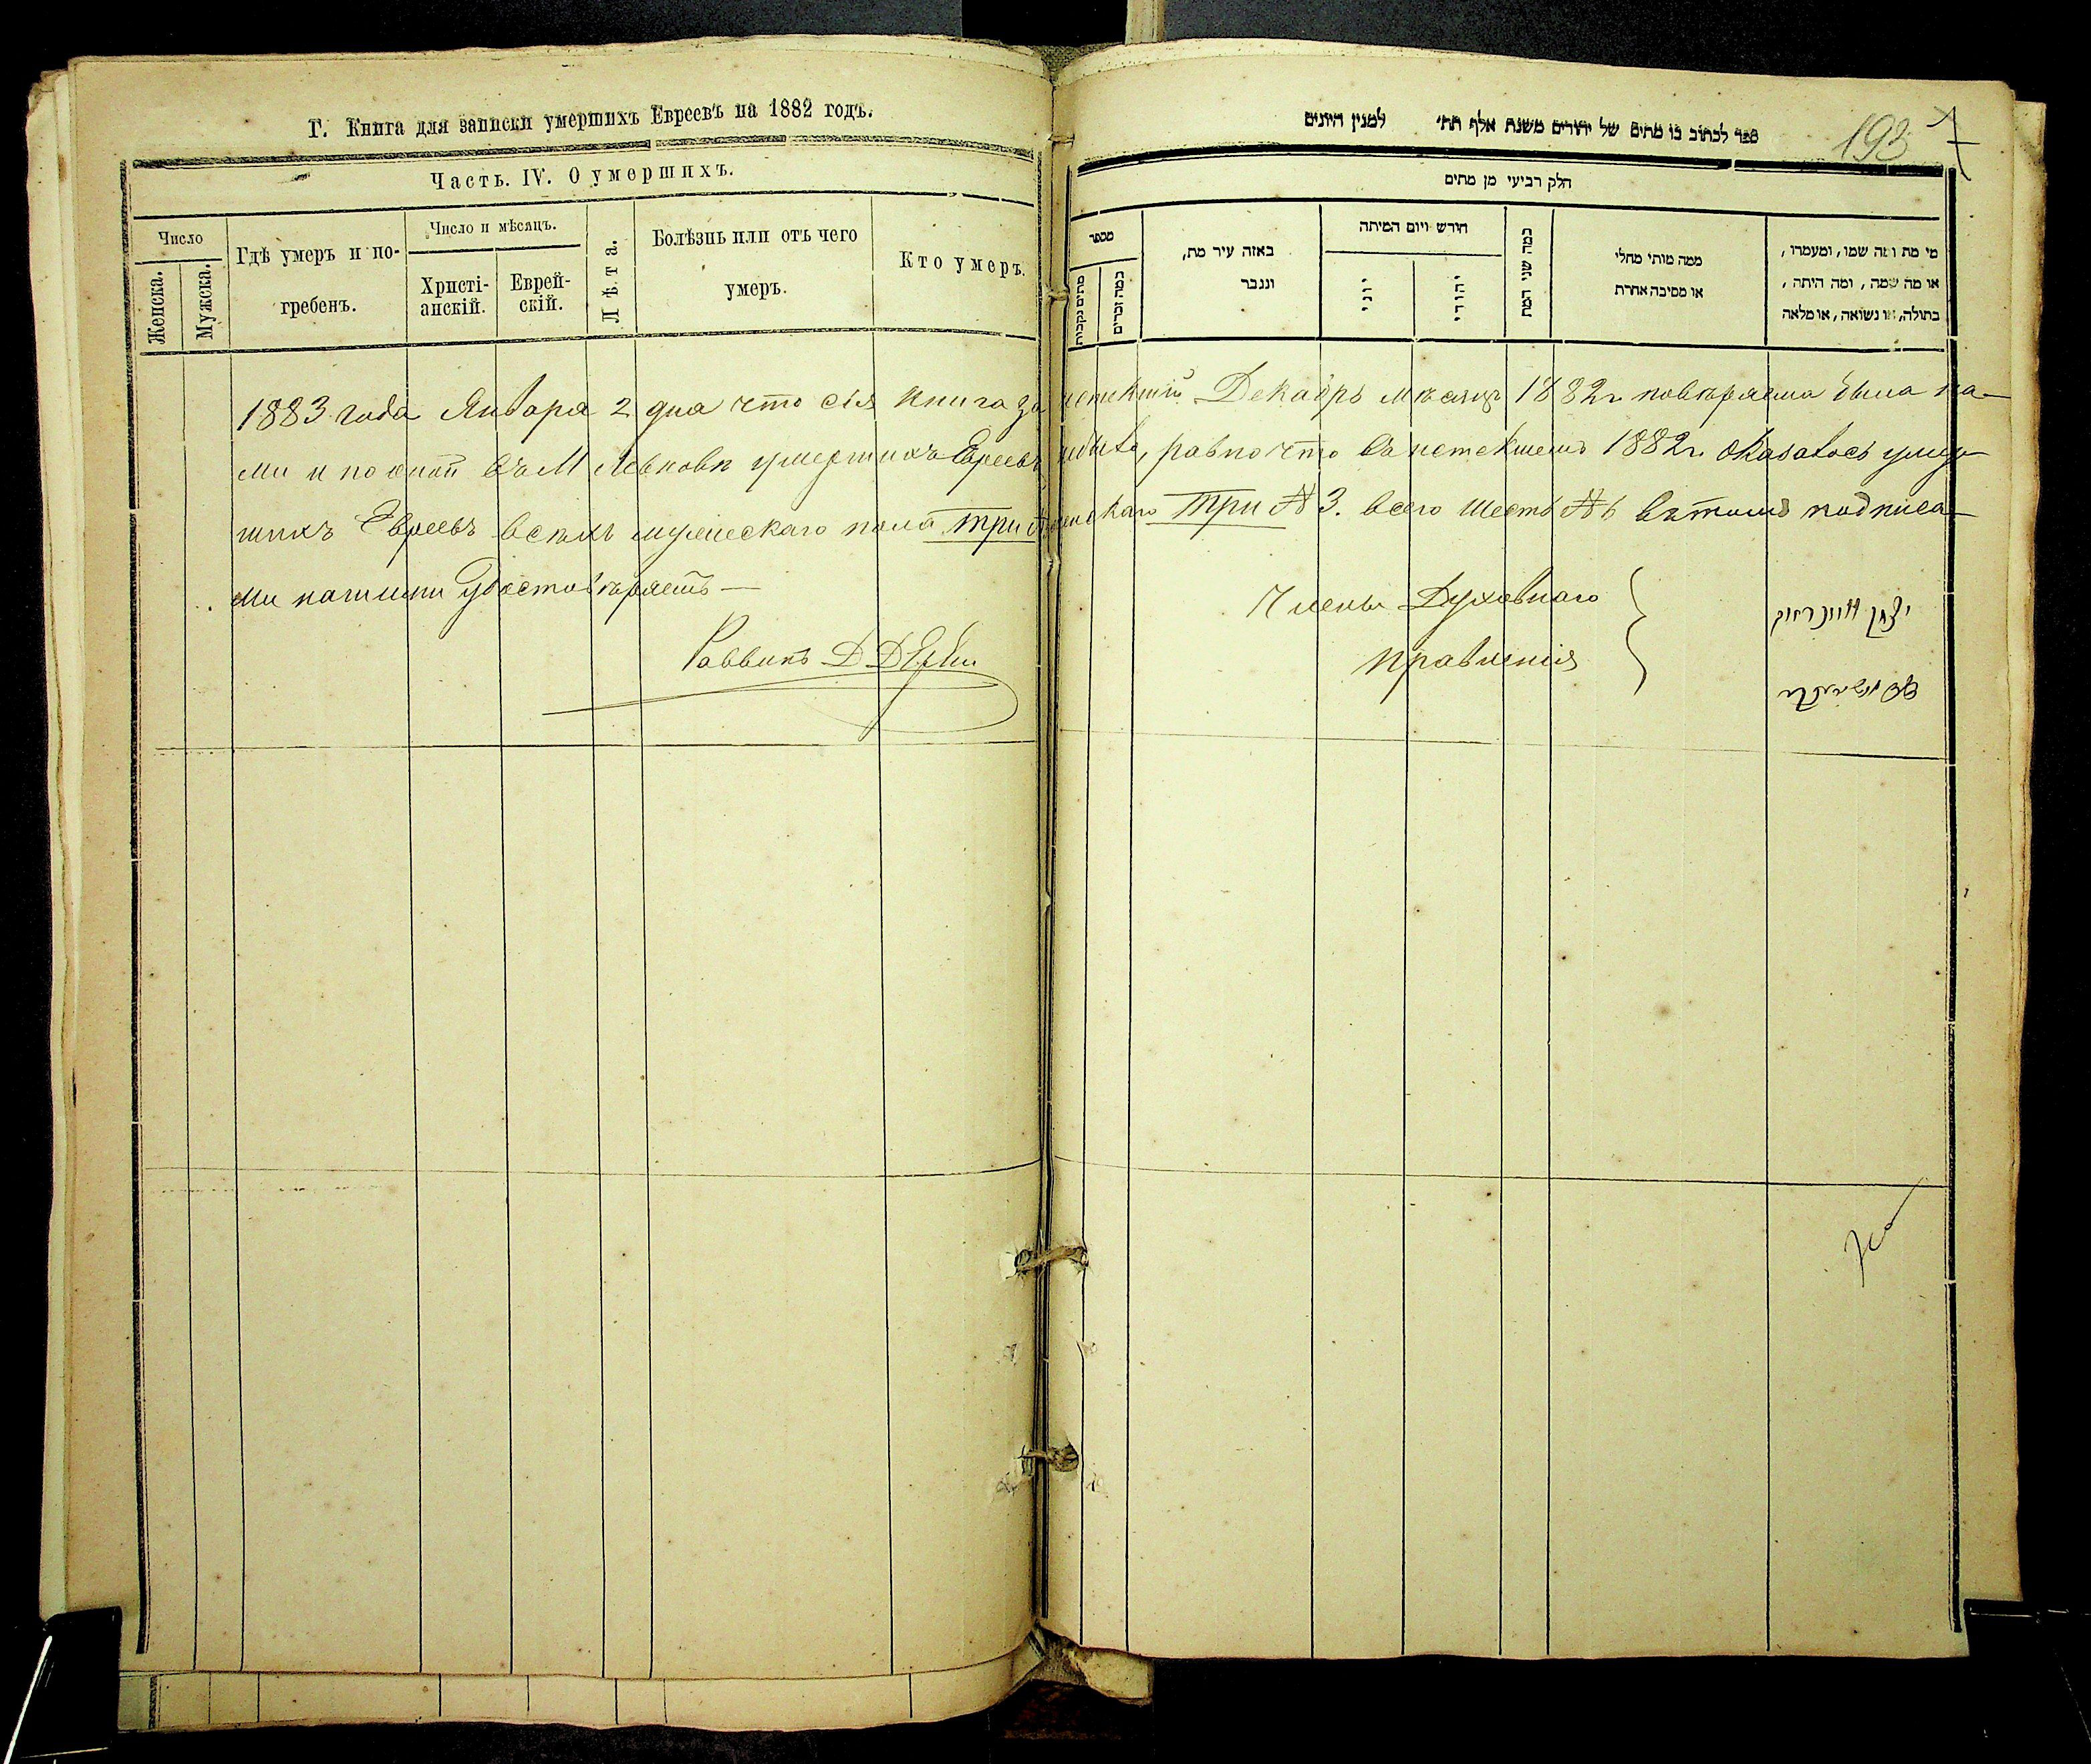 Г. Книга для записки умершихъ Евреевъ на 1882 годъ.
Часть. IV. О умершихъ.
Число
Женска.
Мужска.
Гдѣ умеръ и по-
гребенъ.
Число и мѣсяцъ.
Христі-
анскій.
Еврей-
скій.
Лѣта.
Болѣзнь или отъ чего
умеръ.
Кто умеръ.
ספר לכתוב בו מתים של יהודים משנת אלף תת״ למנין היונים
193
חלק רביעי מן מתים
מספר
מתים נקבות
כמה זכרים
באזה עיר מת,
ונגבר
חודש ויום המיתה
יוני
יהודי
כמה שני המת
ממה מותי מחלי
או מסיבה אחרת
מי מת ומה שמו, ומעמרו,
או מה שמה, ומה היתה,
בתולה, או נשואה, או מלאה
1883 года Января 2 дня что сія книга за истекшій Декабрь мѣсяцъ 1882 г. повѣряема была на-
ми и по оной въ М Левковѣ умершихъ Евреевъ, равно что въ истекшемъ 1882 г. оказалось умер-
шихъ Евреевъ всѣхъ мужескаго пола три женскаго три № 3. всего шесть № 6 въ томъ подписа-
ми нашими удостовѣряетъ —
Раввинъ Д
Члены Духовнаго
Правленія
יצחק